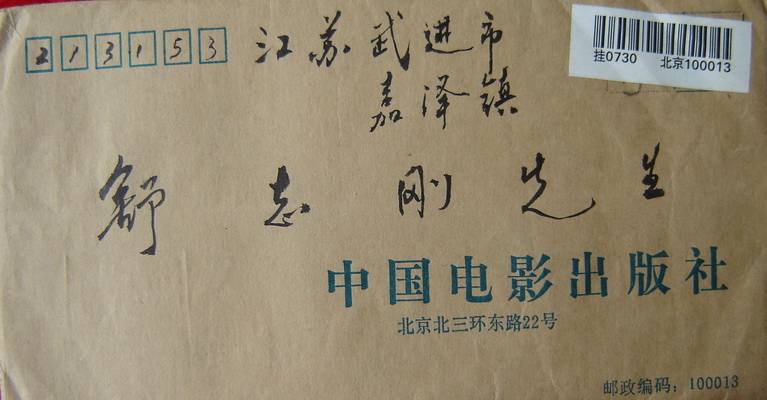 213153 江苏武进市
嘉泽镇
挂0730 北京100013
舒志刚先生
中国电影出版社
北京北三环东路22号
邮政编码：100013